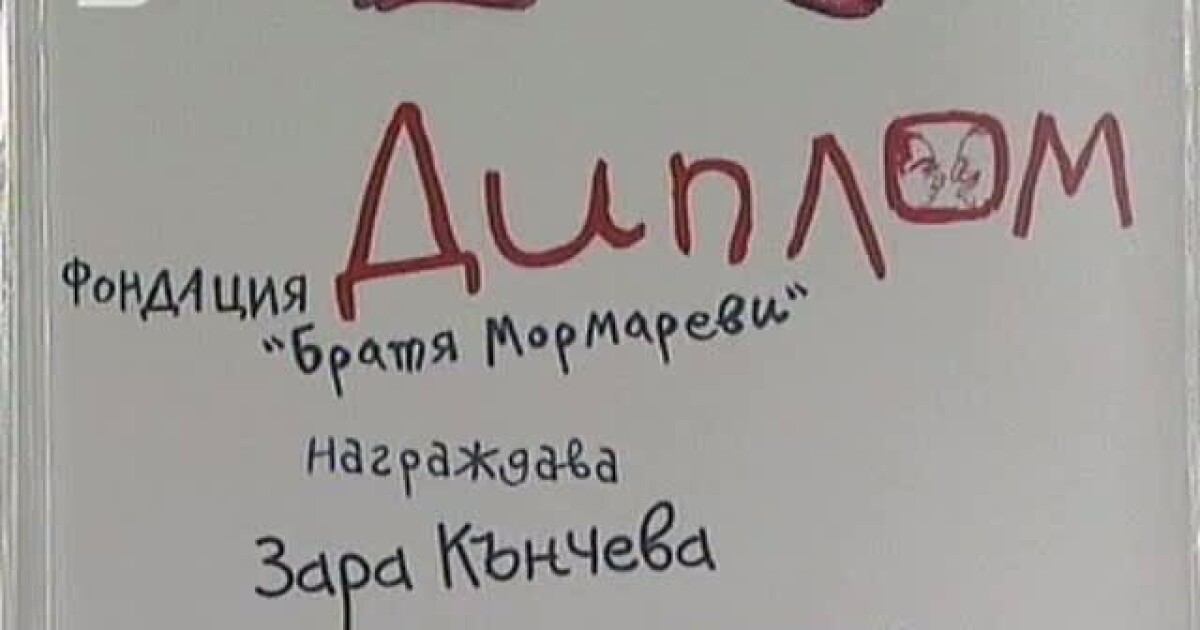 ДИПЛОМ
ФОНДАЦИЯ
"Братя Мормареви"
награждава
Зара Кънчева